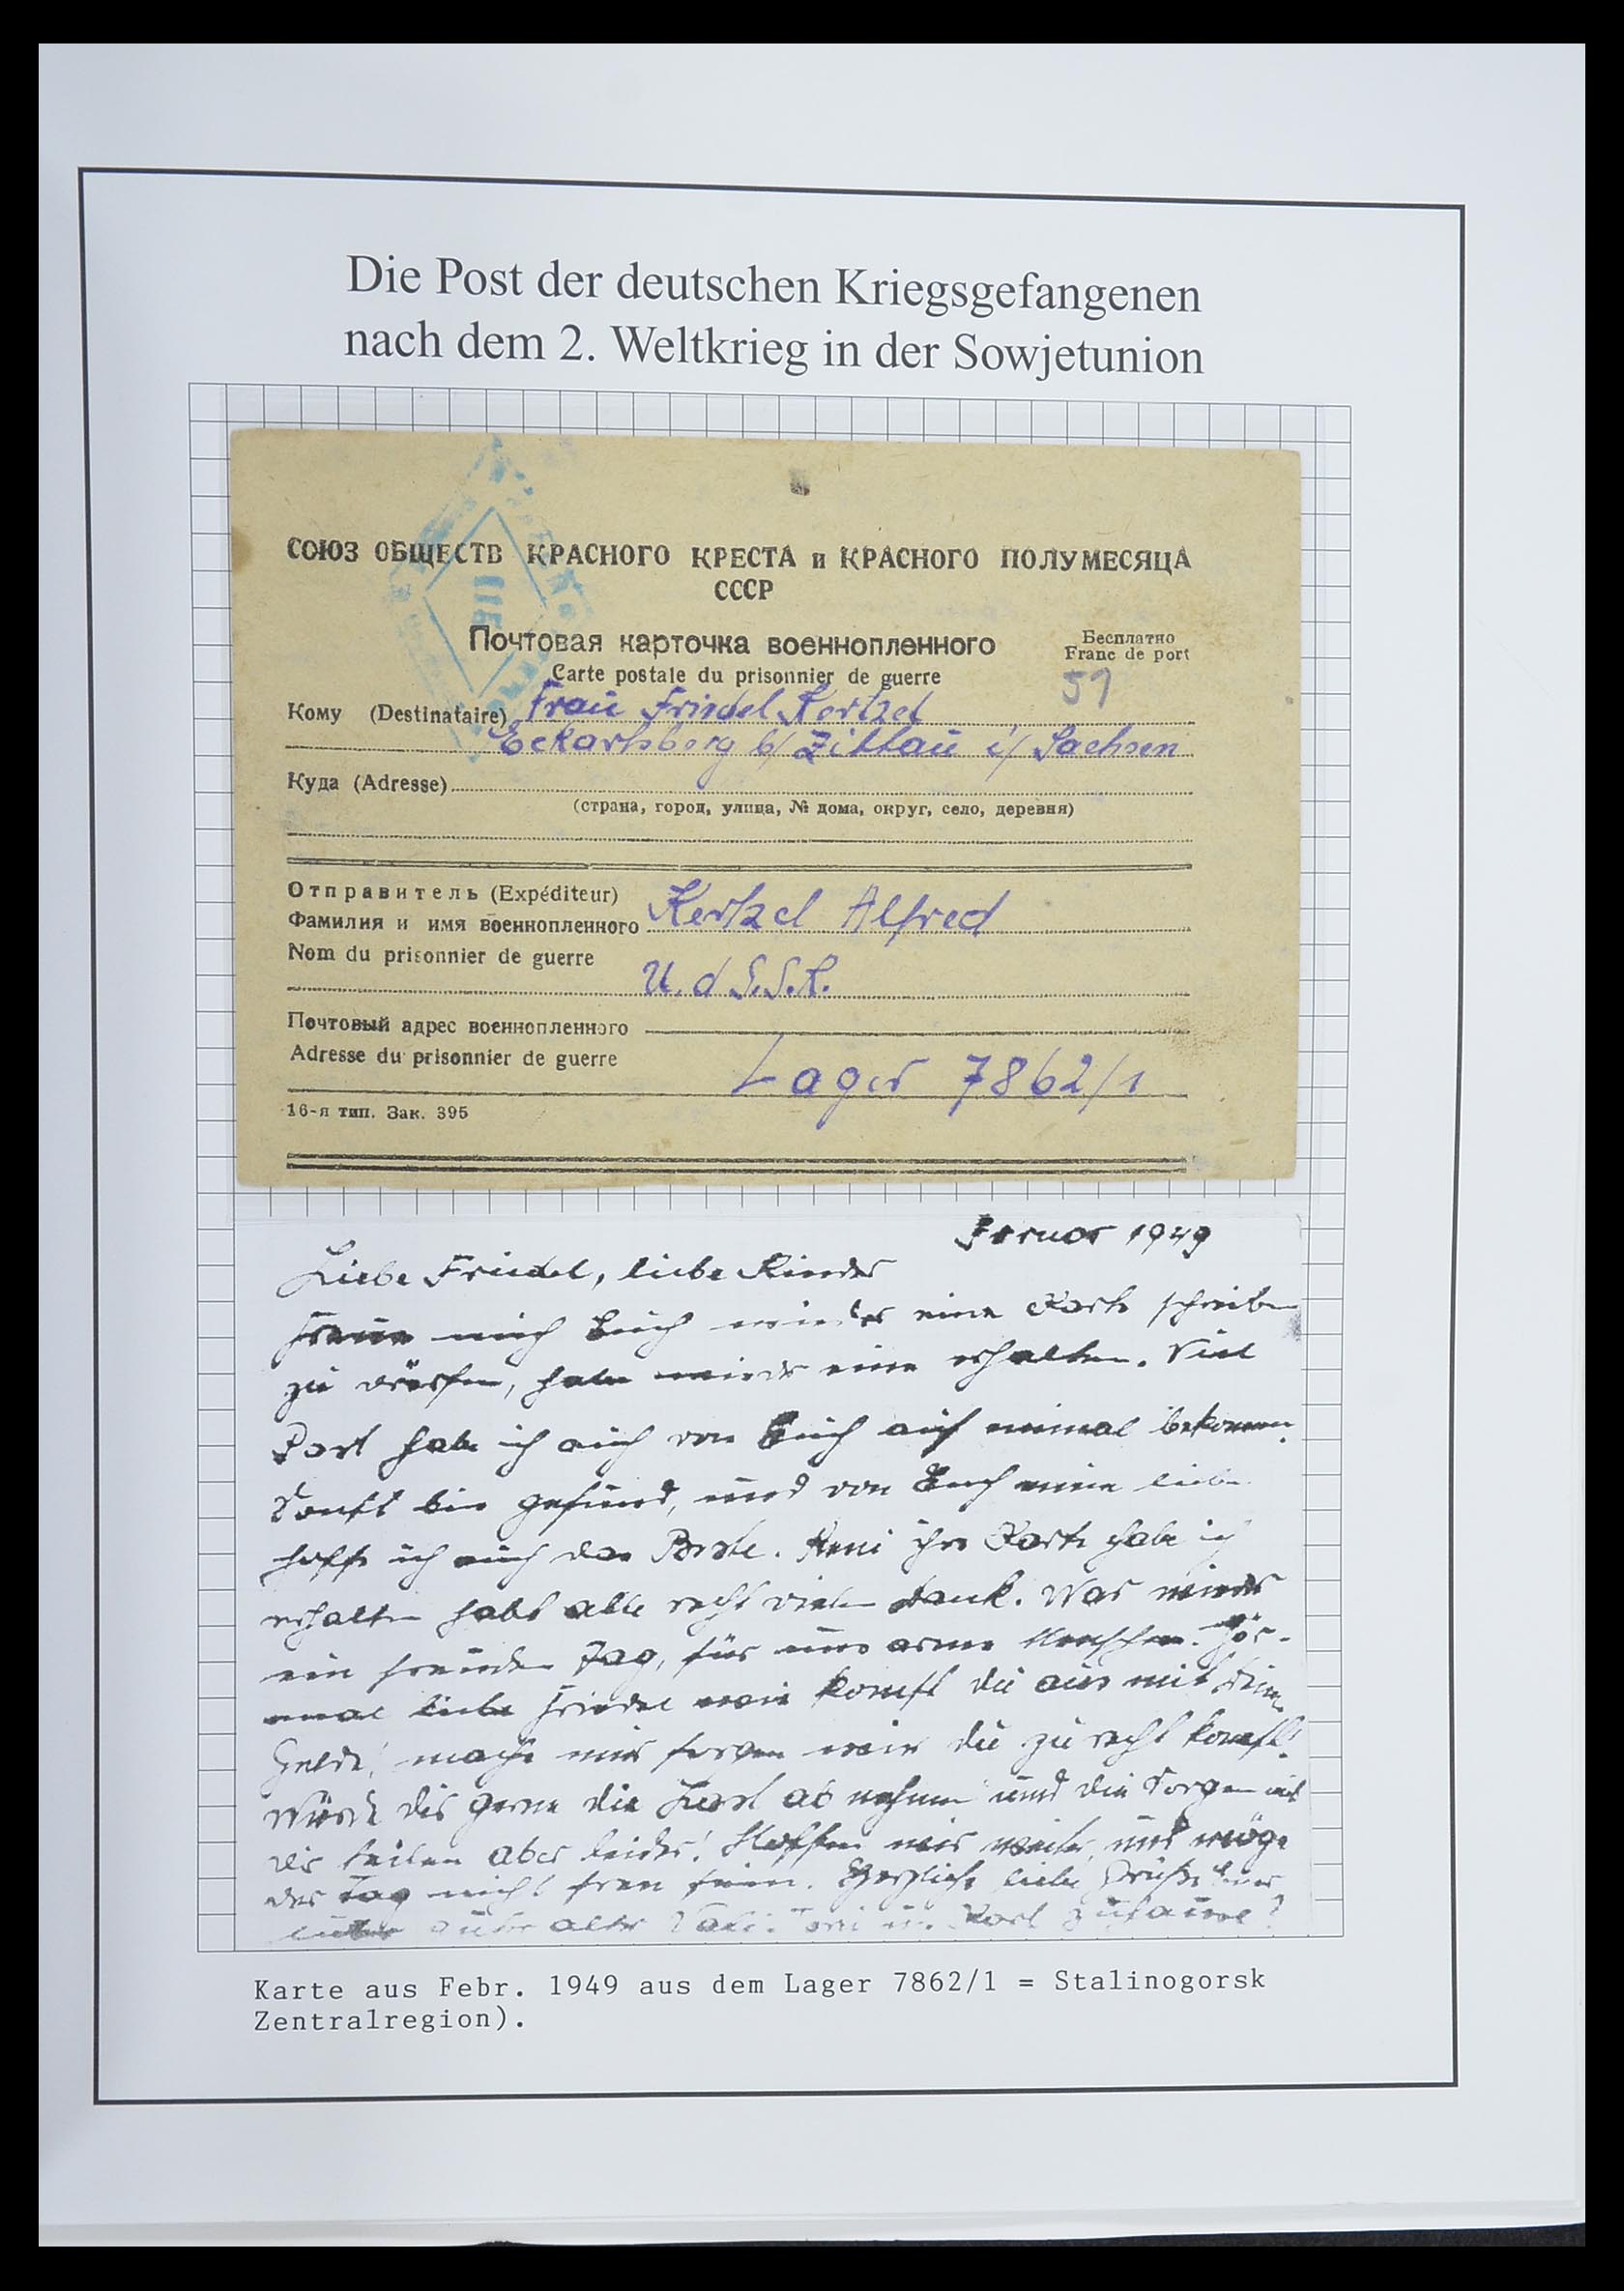 Die Post der deutschen Kriegsgefangenen
nach dem 2. Weltkrieg in der Sowjetunion
СОЮЗ ОБЩЕСТВ КРАСНОГО КРЕСТА и КРАСНОГО ПОЛУМЕСЯЦА
СССР
Почтовая карточка военнопленного
Бесплатно
Franc de port
Carte postale du prisonnier de guerre
59
Кому (Destinataire) Frau Friedel Kertzel
Eckartsberg b/ Zittau i/ Sachsen
Куда (Adresse)
(страна, город, улица, № дома, округ, село, деревня)
Отправитель (Expéditeur)
Фамилия и имя военнопленного Kertzel Alfred
Nom du prisonnier de guerre
U.d.S.S.R.
Почтовый адрес военнопленного
Adresse du prisonnier de guerre
Lager 7862/1
16-я тип. Зак. 395
1949
Liebe Friedel, liebe Kinder
Freue mich Euch wieder eine Karte schreiben
zu dürfen, habe wieder eine erhalten. Viel
Post habe ich auch von Euch auf einmal bekommen.
Sonst bin gesund, und von Euch meine lieben
hoffe ich auch das Beste. ihre Karte habe ich
erhalten habt alle recht vielen Dank. War wieder
ein freuden Tag, für uns arme Menschen. Hör-
mal liebe Friedel wie komst du aus mit Deinem
Gelde! mache mir sorgen wie du zu recht komst!
Würde dir gerne die Last ab nehmen und die Sorgen mit
dir teilen aber leider! Hoffen wir weiter, und möge
der Tag nicht fern sein. Herzliche liebe Grüße Euer
alter Vati.
Karte aus Febr. 1949 aus dem Lager 7862/1 = Stalinogorsk
Zentralregion).